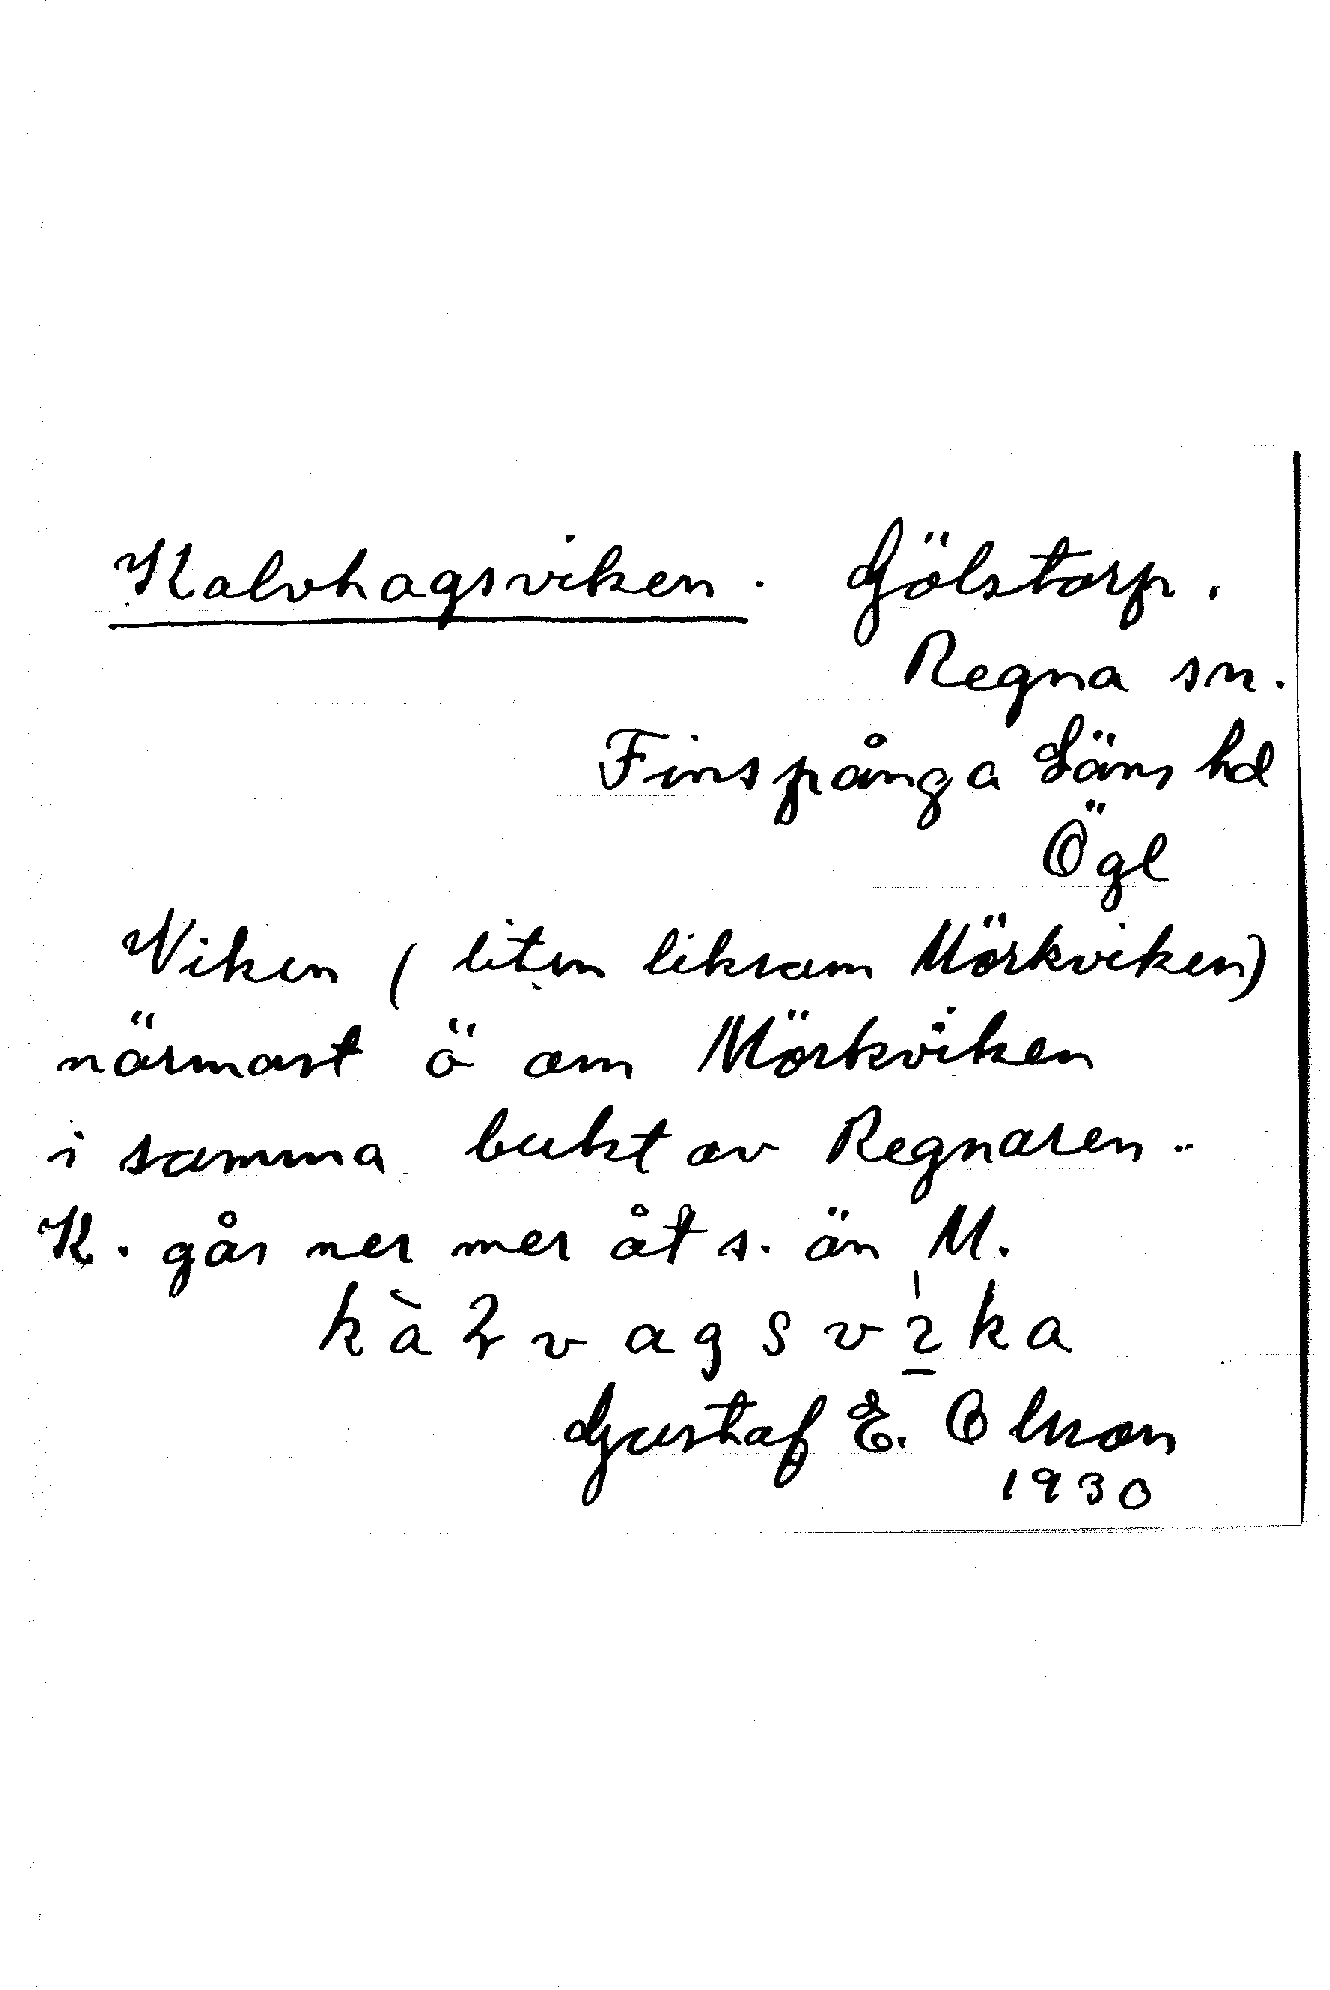 Kalvhagsviken. Gölstorp.
Regna sn.
Finspånga Läns hd
Ögl
Viken (liten liksom Mörkviken)
närmast ö om Mörkviken
i samma bukt av Regnaren.
K. går ner mer åt s. än M.
Gustaf E. Olsson
1930